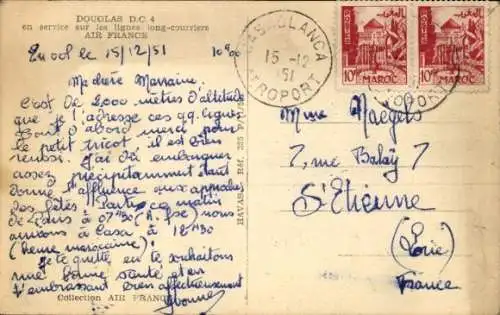 DOUGLAS D.C. 4
en service sur les lignes long-courriers
AIR FRANCE
En vol le 15/12/51 10h00
Ma chère Marraine,
C'est de 2000 mètres d'altitude
que je t'adresse ces qq. lignes
Tout d'abord merci pour
le petit tricot, il est bien
reussi. J'ai dû embarquer
assez précipitamment étant
donné l'affluence aux approches
des fêtes. Partis ce matin
de Paris à 07h30 (h. fse) nous
arrivons à Casa à 12h30
(heure marocaine)
Je te quitte en te souhaitant
une bonne santé et en
t'embrassant bien affectueusement
Yvonne
Collection AIR FRANCE
HAVAS
CASABLANCA
15-12
51
AEROPORT
10F MAROC
10F MAROC
Mme Maegels
7, rue Balaÿ 7
St Etienne
(Loire)
France